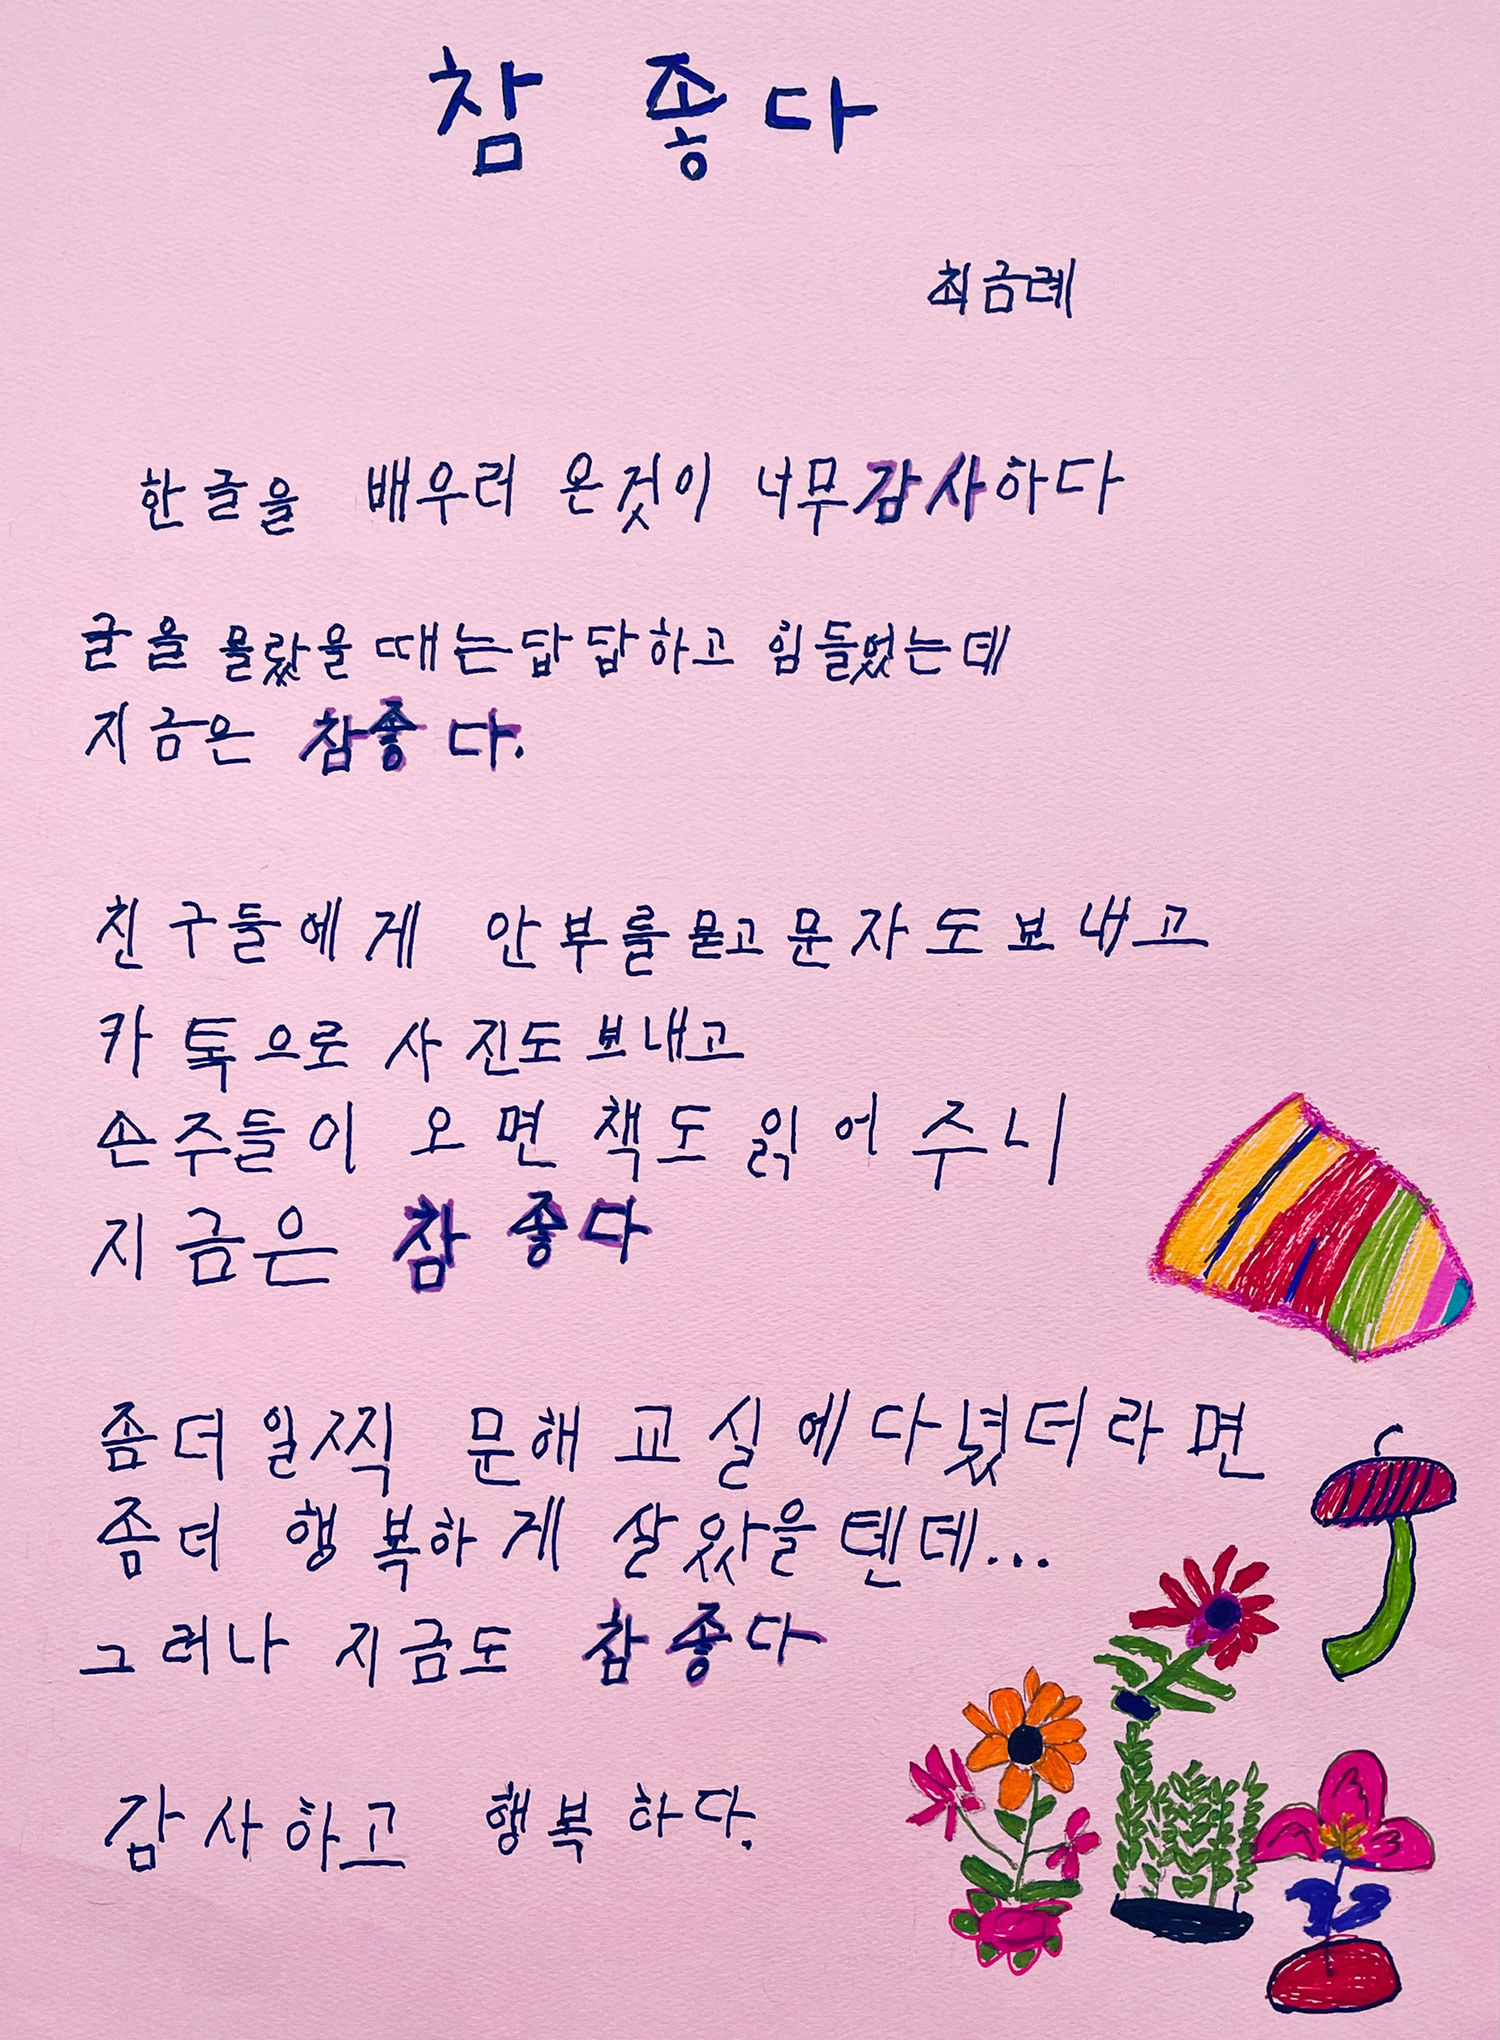 참 좋다
최금례
한글을 배우러 온것이 너무감사하다
글을 몰랐을때는답답하고 힘들었는데
지금은 참좋다.
친구들에게 안부를묻고문자도보내고
카톡으로 사진도보내고
손주들이 오면 책도 읽어주니
지금은 참 좋다
좀더일찍 문해교실에다녔더라면
좀더 행복하게 살았을텐데...
그러나 지금도 참좋다
감사하고 행복하다.